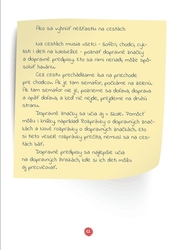 Ako sa vyhnúť nešťastiu na cestách
Na cestách musia všetci - šoféri, chodci, cyk-
listi i deti na kolobežke - poznať dopravné značky
a dopravné predpisy. Kto sa nimi neriadi, môže spô-
sobiť haváriu.
Cez cestu prechádzame iba na priechode
pre chodcov. Ak je tam semafor, počkáme na zelenú.
Ak tam semafor nie je, pozrieme sa doľava, doprava
a opäť doľava, a keď nič nejde, prejdeme na druhú
stranu.
Dopravné značky sa učia aj v škole. Pomôcť
môžu i knižky, napríklad Rozprávky o dopravných znač-
kách a Nové rozprávky o dopravných značkách. Kto
si tieto veselé rozprávky prečíta, nemusí sa na ces-
tách báť.
Dopravné predpisy sa najlepšie učia
na dopravných ihriskách, kde si ich deti môžu
aj precvičovať.